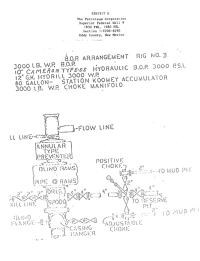 EXHIBIT E
The Petroleum Corporation
Superior Federal Well #
1980 FNL, 1980 FEL
Eddy County, New Mexico
B.O.P. ARRANGEMENT RIG NO. 3
3000 LB. W.P. B.O.P.
10" CAMERON TYPE-SS HYDRAULIC B.O.P. 3000 P.S.I.
12" GK HYDRILL 3000 W.P.
80 GALLON- STATION KOOMEY ACCUMULATOR
3000 LB. W.P. CHOKE MANIFOLD
FLOW LINE
LL LINE
ANNULAR
TYPE
PREVENTOR
BLIND RAMS
PIPE RAMS
DRILL
SPOOL
POSITIVE
CHOKE
TO MUD PIT
TO RESERVE
PIT
KILL LINE
BLIND
FLANGE
CASING
HANGER
ADJUSTABLE
CHOKE
TO MUD PI